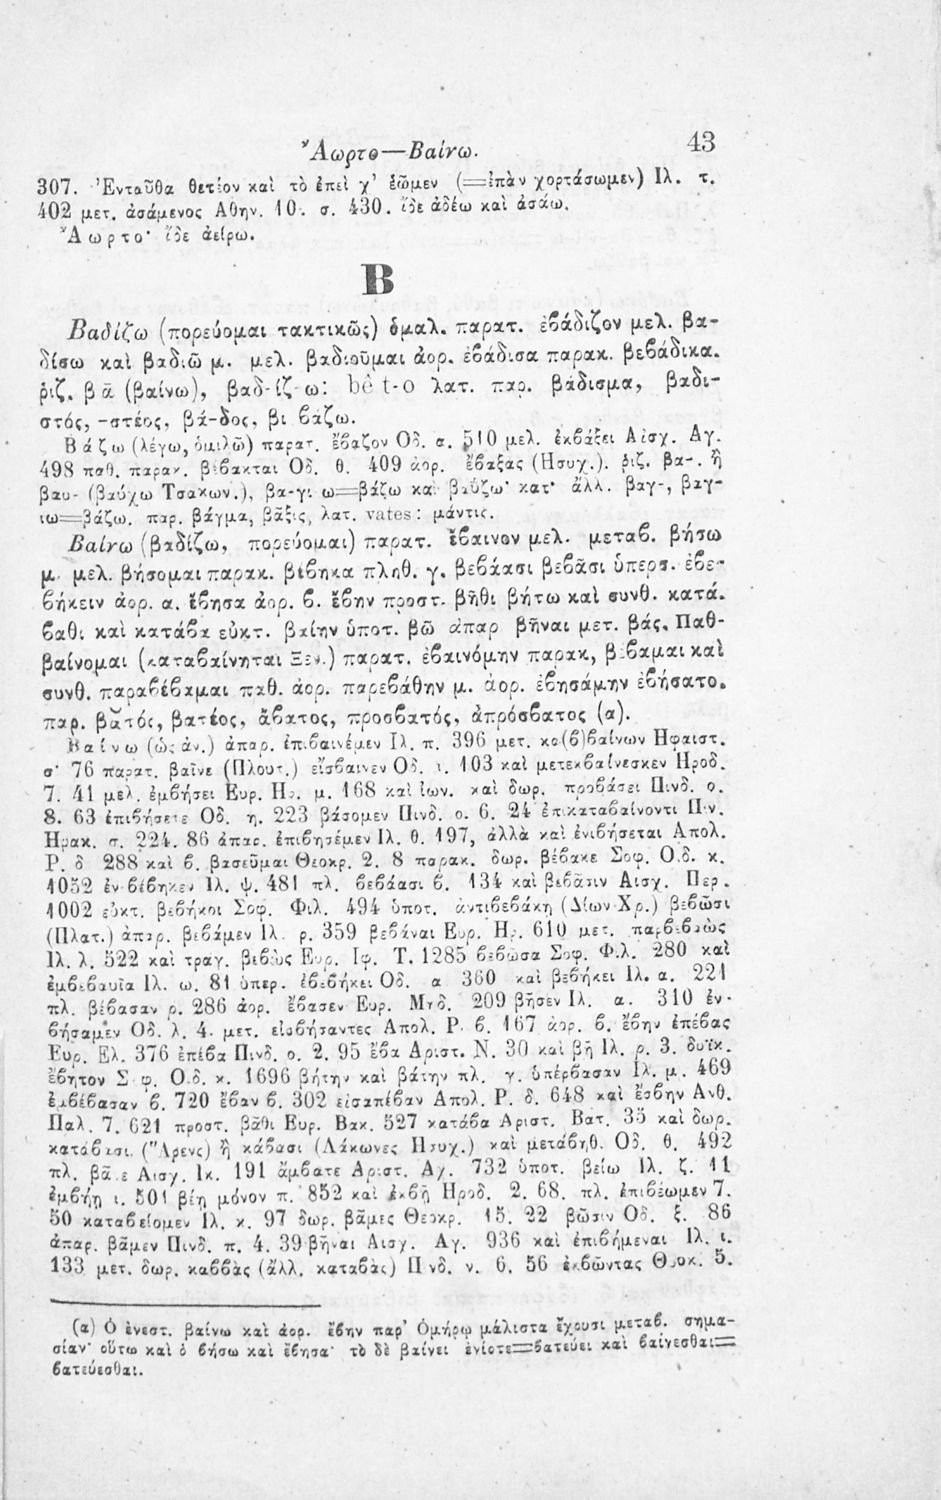 Ἄωρτο—Βαίνω. 43
307. Ἐνταῦθα θετέον καὶ τὸ ἐπεὶ χ’ ἑῶμεν (=ἐπὰν χορτάσωμεν) Ἰλ. τ.
402 μετ. ἀσάμενος Ἀθην. 10. σ. 430. ἴδε ἀδέω καὶ ἀσάω.
Ἄωρτο· ἴδε ἀείρω.
Β
Βαδίζω (πορεύομαι τακτικῶς) ὁμαλ. παρατ. ἐβάδιζον μελ. βα-
δίσω καὶ βαδιῶ μ. μελ. βαδιοῦμαι ἀορ. ἐβάδισα παρακ. βεβάδικα.
ῥιζ. βᾰ (βαίνω), βαδ-ίζ-ω: bê t-o λατ. παρ. βάδισμα, βαδι-
στός, -στέος, βά-δος, βι βάζω.
Βάζω (λέγω, ὁμιλῶ) παρατ. ἔβαζον Ὀδ. α. 510 μελ. ἐκβάξει Αἰσχ. Ἀγ.
498 παθ. παρακ. βέβακται Ὀδ. θ. 409 ἀορ. ἔβαξας (Ἡσυχ.). ῥιζ. βα-. ἢ
βαυ- (βαύχω Τσακων.), βα-γι ω=βάζω καὶ βαΰζω· κατ’ ἄλλ. βαγ-, βαγ-
ιω=βάζω. παρ. βάγμα, βᾶξις, λατ. vates: μάντις.
Βαίνω (βαδίζω, πορεύομαι) παρατ. ἔβαινον μελ. μεταβ. βήσω
μ. μελ. βήσομαι παρακ. βέβηκα πληθ. γ. βεβάασι βεβᾶσι ὑπερσ. ἐβε-
βήκειν ἀορ. α. ἔβησα ἀορ. β. ἔβην προστ. βῆθι βήτω καὶ συνθ. κατά-
βαθι καὶ κατάβα εὐκτ. βαίην ὑποτ. βῶ ἀπαρ βῆναι μετ. βάς. Παθ-
βαίνομαι (καταβαίνηται Ξεν.) παρατ. ἐβαινόμην παρακ, βέβαμαι καὶ
συνθ. παραβέβαμαι παθ. ἀορ. παρεβάθην μ. ἀορ. ἐβησάμην ἐβήσατο.
παρ. βᾰτός, βατέος, ἄβατος, προσβατός, ἀπρόσβατος (α).
Βαίνω (ὡς ἀν.) ἀπαρ. ἐπιβαινέμεν Ἰλ. π. 396 μετ. κα(β)βαίνων Ἡφαιστ.
σ· 76 παρατ. βαῖνε (Πλουτ.) εἴσβαινεν Ὀδ. ι. 103 καὶ μετεκβαίνεσκεν Ἡροδ.
7. 41 μελ. ἐμβήσει Εὐρ. Ἡρ. μ. 168 καὶ ἰων. καὶ δωρ. προβάσει Πινδ. ο.
8. 63 ἐπιβήσετε Ὀδ. η. 223 βάσομεν Πινδ. ο. 6. 24 ἐπικαταβαίνοντι Πιν.
Ἡρακ. σ. 224. 86 ἀπαρ. ἐπιβησέμεν Ἰλ. θ. 197, ἀλλὰ καὶ ἐνιβήσεται Ἀπολ.
Ρ. δ 288 καὶ β. βασεῦμαι Θεοκρ. 2. 8 παρακ. δωρ. βέβακε Σοφ. Ο.δ. κ.
1052 ἐν·βέβηκεν Ἰλ. ψ. 481 πλ. βεβάασι β. 134 καὶ βεβᾶσιν Αἰσχ. Περ.
1002 εὐκτ. βεβήκοι Σοφ. Φιλ. 494 ὑποτ. ἀντιβεβάκη (Δίων Χρ.) βεβῶσι
(Πλατ.) ἀπαρ. βεβάμεν Ἰλ. ρ. 359 βεβάναι Εὐρ. Ἡρ. 610 μετ. παρβεβαὼς
Ἰλ. λ. 522 καὶ τραγ. βεβὼς Εὐρ. Ἰφ. Τ. 1285 βεβῶσα Σοφ. Φιλ. 280 καὶ
ἐμβεβαυῖα Ἰλ. ω. 81 ὑπερ. ἐβεβήκει Ὀδ. α 360 καὶ βεβήκει Ἰλ. α. 221
πλ. βέβασαν ρ. 286 ἀορ. ἔβασεν Εὐρ. Μηδ. 209 βῆσεν Ἰλ. α. 310 ἐν-
βήσαμεν Ὀδ. λ. 4. μετ. εἰσβήσαντες Ἀπολ. Ρ. β. 167 ἀορ. β. ἔβην ἐπέβας
Εὐρ. Ἐλ. 376 ἐπέβα Πινδ. ο. 2. 95 ἔβα Ἀριστ. Ν. 30 καὶ βῆ Ἰλ. ρ. 3. δυϊκ.
ἔβητον Σοφ. Ο.δ. κ. 1696 βήτην καὶ βάτην πλ. γ. ὑπέρβασαν Ἰλ. μ. 469
β. 720 ἔβαν β. 302 εἰσαπέβαν Ἀπολ. Ρ. δ. 648 καὶ ἔσβην Ἀνθ.
Παλ. 7. 621 προστ. βᾶθι Εὐρ. Βακ. 527 κατάβα Ἀριστ. Βατ. 35 καὶ δωρ.
κατάβασι. (Ἄρενς) ἢ κάβασι (Λάκωνες Ἡσυχ.) καὶ μετάβηθ. Ὀδ. θ. 492
πλ. βᾶτε Αἰσχ. Ἱκ. 191 ἄμβατε Ἀριστ. Ἀχ. 732 ὑποτ. βείω Ἰλ. ζ. 11
ἐμβήῃ ι. 501 βέῃ μόνον π. 852 καὶ ἐκβῇ Ἡροδ. 2. 68. πλ. ἐπιβέωμεν 7.
50 καταβείομεν Ἰλ. κ. 97 δωρ. βᾶμες Θεοκρ. 15. 22 βῶσιν Ὀδ. ξ. 86
ἀπαρ. βᾶμεν Πινδ. π. 4. 39 βῆναι Αἰσχ. Ἀγ. 936 καὶ ἐπιβήμεναι Ἰλ. ι.
133 μετ. δωρ. καββὰς (ἄλλ. καταβὰς) Πινδ. ν. 6. 56 ἐκβῶντας Θουκ. 5.
(α) Ὁ ἐνεστ. βαίνω καὶ ἀορ. ἔβην παρ’ Ὁμήρῳ μάλιστα ἔχουσι μεταβ. σημα-
σίαν· οὕτω καὶ ὁ βήσω καὶ ἔβησα· τὸ δὲ βαίνει ἐνίοτε=βατεύει καὶ βαίνεσθαι=
βατεύεσθαι.